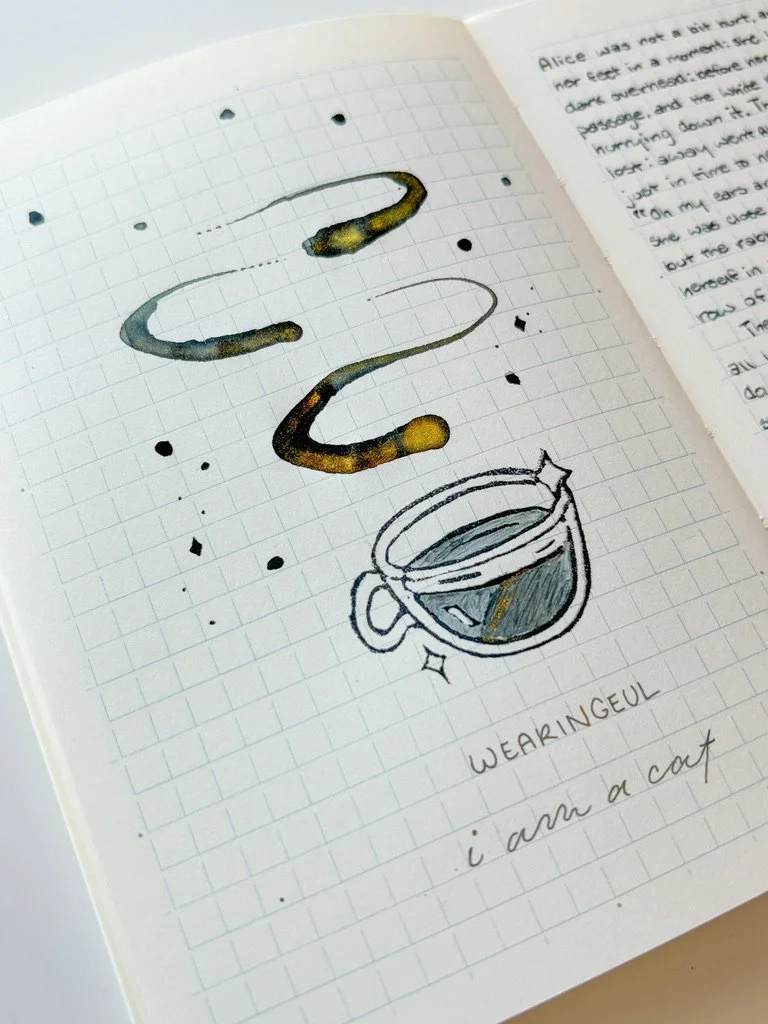 WEARINGEUL
i am a cat
Alice was not a bit hurt,
her feet in a moment: she
dark overhead: before her
passage, and the White
hurrying down it. Th
lost: away went A
just in time to h
"Oh my ears an
she was close
but the rabb
herself in
row of
The
all
do